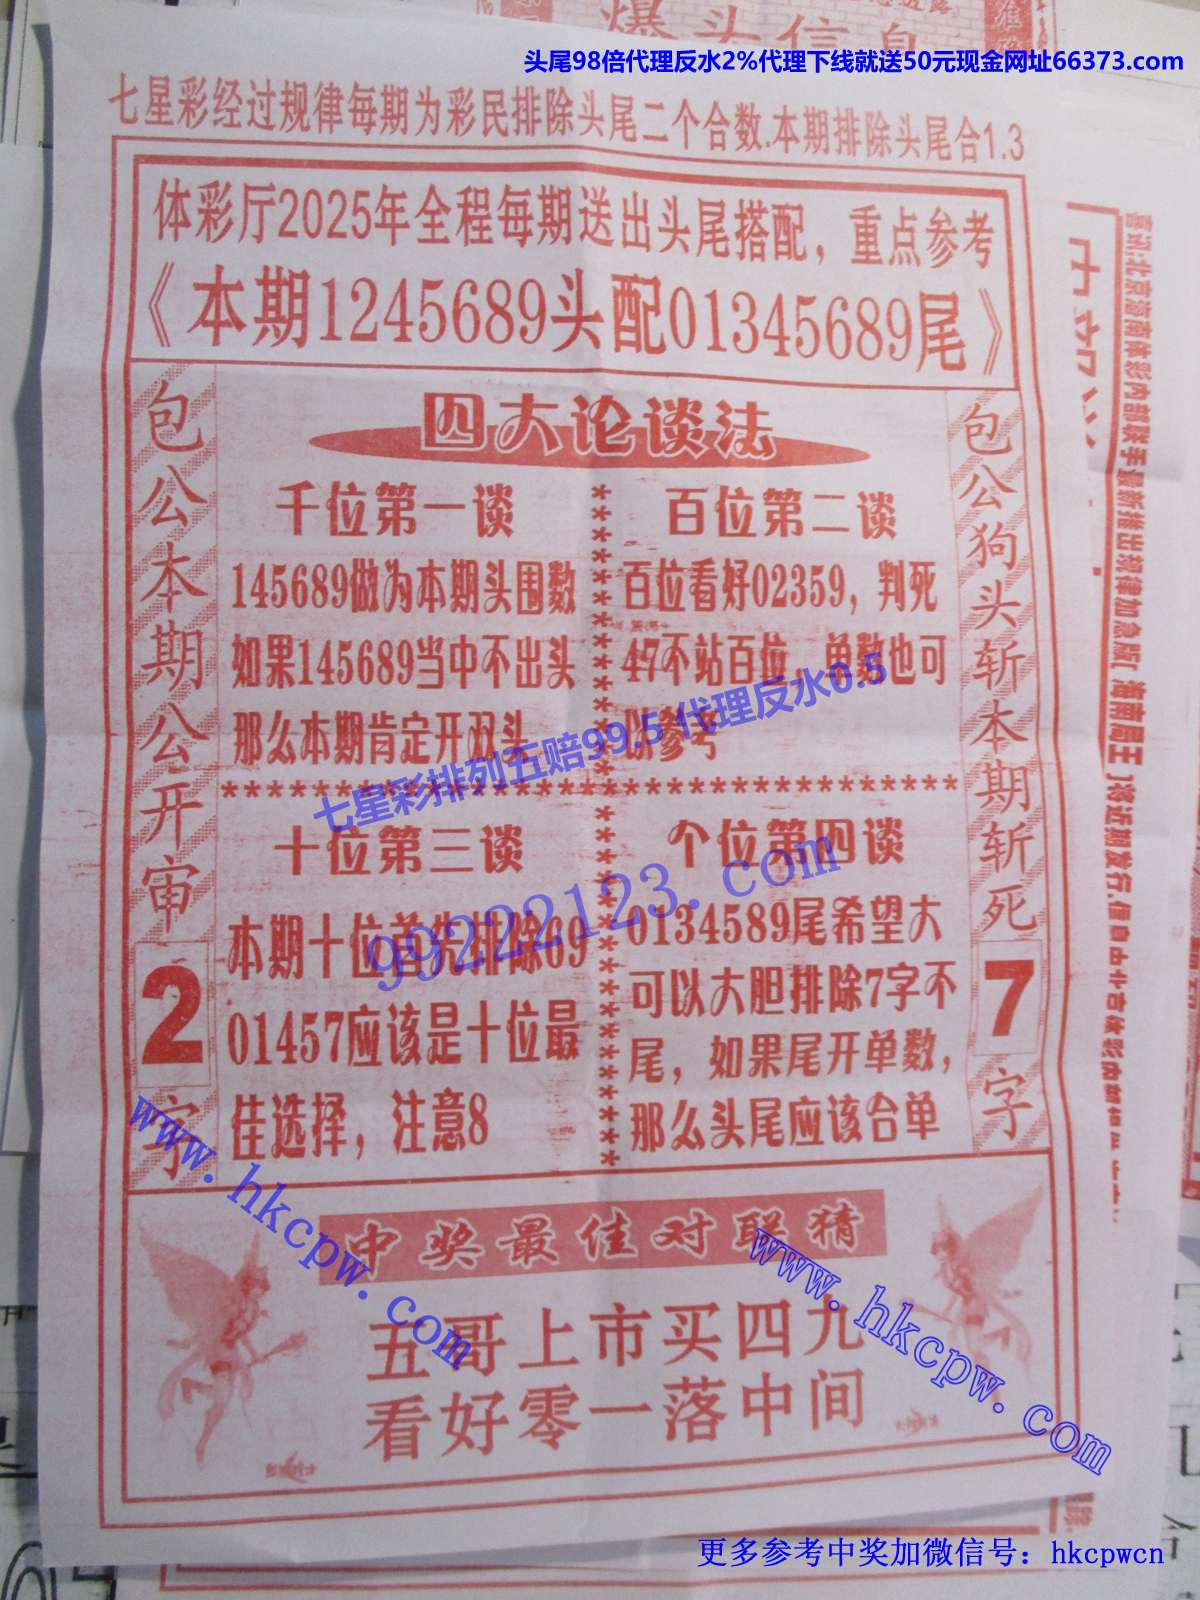 爆头信息
头尾98倍代理反水2%代理下线就送50元现金网址66373.com
七星彩经过规律每期为彩民排除头尾二个合数.本期排除头尾合1.3
体彩厅2025年全程每期送出头尾搭配，重点参考
《本期1245689头配01345689尾》
包公本期公开审2字
四大论谈法
千位第一谈
145689做为本期头围数
如果145689当中不出头
那么本期肯定开双头
百位第二谈
百位看好02359，判死
47不站百位，单数也可
以参考
七星彩排列五赔99.5 代理反水0.5
99222123.com
十位第三谈
本期十位首先排除69
01457应该是十位最
佳选择，注意8
个位第四谈
0134589尾希望大
可以大胆排除7字不
尾，如果尾开单数，
那么头尾应该合单
包公狗头斩本期斩死7字
中奖最佳对联猜
五哥上市买四九
看好零一落中间
www.hkcpw.com
www.hkcpw.com
更多参考中奖加微信号：hkcpwcn